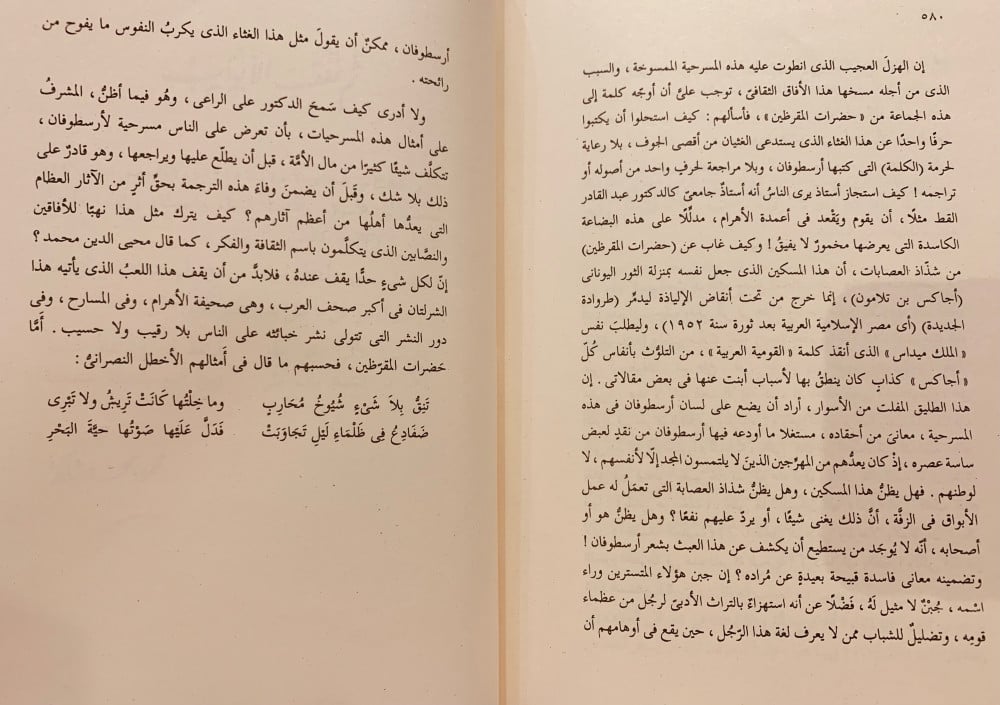 ٥٨٠
إن الهزلَ العجيب الذى انطوت عليه هذه المسرحية الممسوخة ، والسبب
الذى من أجله مسخها هذا الأفاق الثقافىّ ، توجب علىَّ أن أوجِّه كلمة إلى
هذه الجماعة من « حضرات المقرظين » ، فأسألهم : كيف استحلوا أن يكتبوا
حرفًا واحدًا عن هذا الغثاء الذى يستدعى الغثيان من أقصى الجوف ، بلا رعاية
لحرمة (الكلمة) التى كتبها أرسطوفان ، وبلا مراجعة لحرفٍ واحد من أصوله أو
تراجمه ! كيف استجاز أستاذ يرى الناسُ أنه أستاذٌ جامعىّ كالدكتور عبد القادر
القط مثلًا ، أن يقوم ويَقْعد فى أعمدة الأهرام ، مدلِّلًا على هذه البضاعة
الكاسدة التى يعرضها مخمورٌ لا يفيقُ ! وكيف غاب عن (حضرات المقرظين)
من شذّاذ العصابات ، أن هذا المسكين الذى جعل نفسه بمنزلة الثور اليونانى
(أجاكس بن تلامون) ، إنما خرج من تحت أنقاض الإلياذة ليدمِّر (طروادة
الجديدة) (أى مصر الإسلامية العربية بعد ثورة سنة ١٩٥٢) ، وليطلبَ نفس
« الملك ميداس » الذى أنقذ كلمة « القومية العربية » ، من التلوُّث بأنفاس كُلّ
« أجاكس » كذابٍ كان ينطقُ بها لأسباب أبنت عنها فى بعض مقالاتى . إن
هذا الطليق المفلت من الأسوار ، أراد أن يضع على لسان أرسطوفان فى هذه
المسرحية ، معانىَ من أحقاده ، مستغلا ما أودعه فيها أرسطوفان من نقدٍ لعبض
ساسة عصره ، إذْ كان يعدُّهم من المهرِّجين الذينَ لا يلتمسون المجد إلّا لأنفسهم ، لا
لوطنهم . فهل يظنُّ هذا المسكين ، وهل يظنُّ شذاذ العصابة التى تعمَلُ له عمل
الأبواق فى الزفَّة ، أنَّ ذلك يغنى شيئًا ، أو يردّ عليهم نفعًا ؟ وهل يظنُّ هو أو
أصحابه ، أنّه لا يُوجَد من يستطيع أن يكشف عن هذا العبث بشعر أرسطوفان !
وتضمينه معانى فاسدة قبيحة بعيدةٍ عن مُراده ؟ إن جبن هؤلاء المتسترين وراء
اسْمه ، جُبْنٌ لا مثيل لَهُ ، فَضْلًا عن أنه استهزاءٌ بالتراث الأدبىّ لرجُل من عظماء
قومِه ، وتضليلٌ للشباب ممن لا يعرف لغة هذا الرّجُل ، حين يقع فى أوهامهم أن
أرسطوفان ، ممكنٌ أن يقولَ مثل هذا الغثاء الذى يكربُ النفوس ما يفوح من
رائحته .
ولا أدرى كيف سَمحَ الدكتور على الراعى ، وهُو فيما أظنُّ ، المشرفُ
على أمثال هذه المسرحيات ، بأن تعرض على الناس مسرحية لأرسطوفان ،
تتكلَّف شيئًا كثيرًا من مال الأمَّة ، قبل أن يطلّع عليها ويراجعها ، وهو قادرٌ على
ذلك بلا شك ، وقَبلَ أن يضمنَ وفاءَ هذه الترجمة بحقِّ أثرٍ من الآثار العظام
التى يعدُّها أهلُها من أعظم آثارهم ؟ كيف يترك مثل هذا نهبًا للأفاقين
والنصَّابين الذى يتكلَّمون باسم الثقافة والفكر ، كما قال محيى الدين محمد ؟
إنّ لكل شىءٍ حدًّا يقف عندهُ ، فلابدَّ من أن يقف هذا اللعبُ الذى يأتيه هذا
الشرلتان فى أكبر صحف العرب ، وهى صحيفة الأهرام ، وفى المسارح ، وفى
دور النشر التى تتولى نشر خبائثه على الناس بلا رقيب ولا حسيب . أمَّا
حضرات المقرّظين ، فحسبهم ما قال فى أمثالهم الأخطل النصرانىُّ :
تَنِقُّ بِلاَ شَىْءٍ شُيُوخُ مُحَارِبٍ وما خِلْتُها كَانَتْ تَرِيشُ ولا تَبْرِى
ضَفَادِعُ فِى ظَلْمَاءِ لَيْلٍ تَجَاوَبَتْ فَدَلَّ عَلَيْها صَوْتُها حيَّةَ البَحْرِ